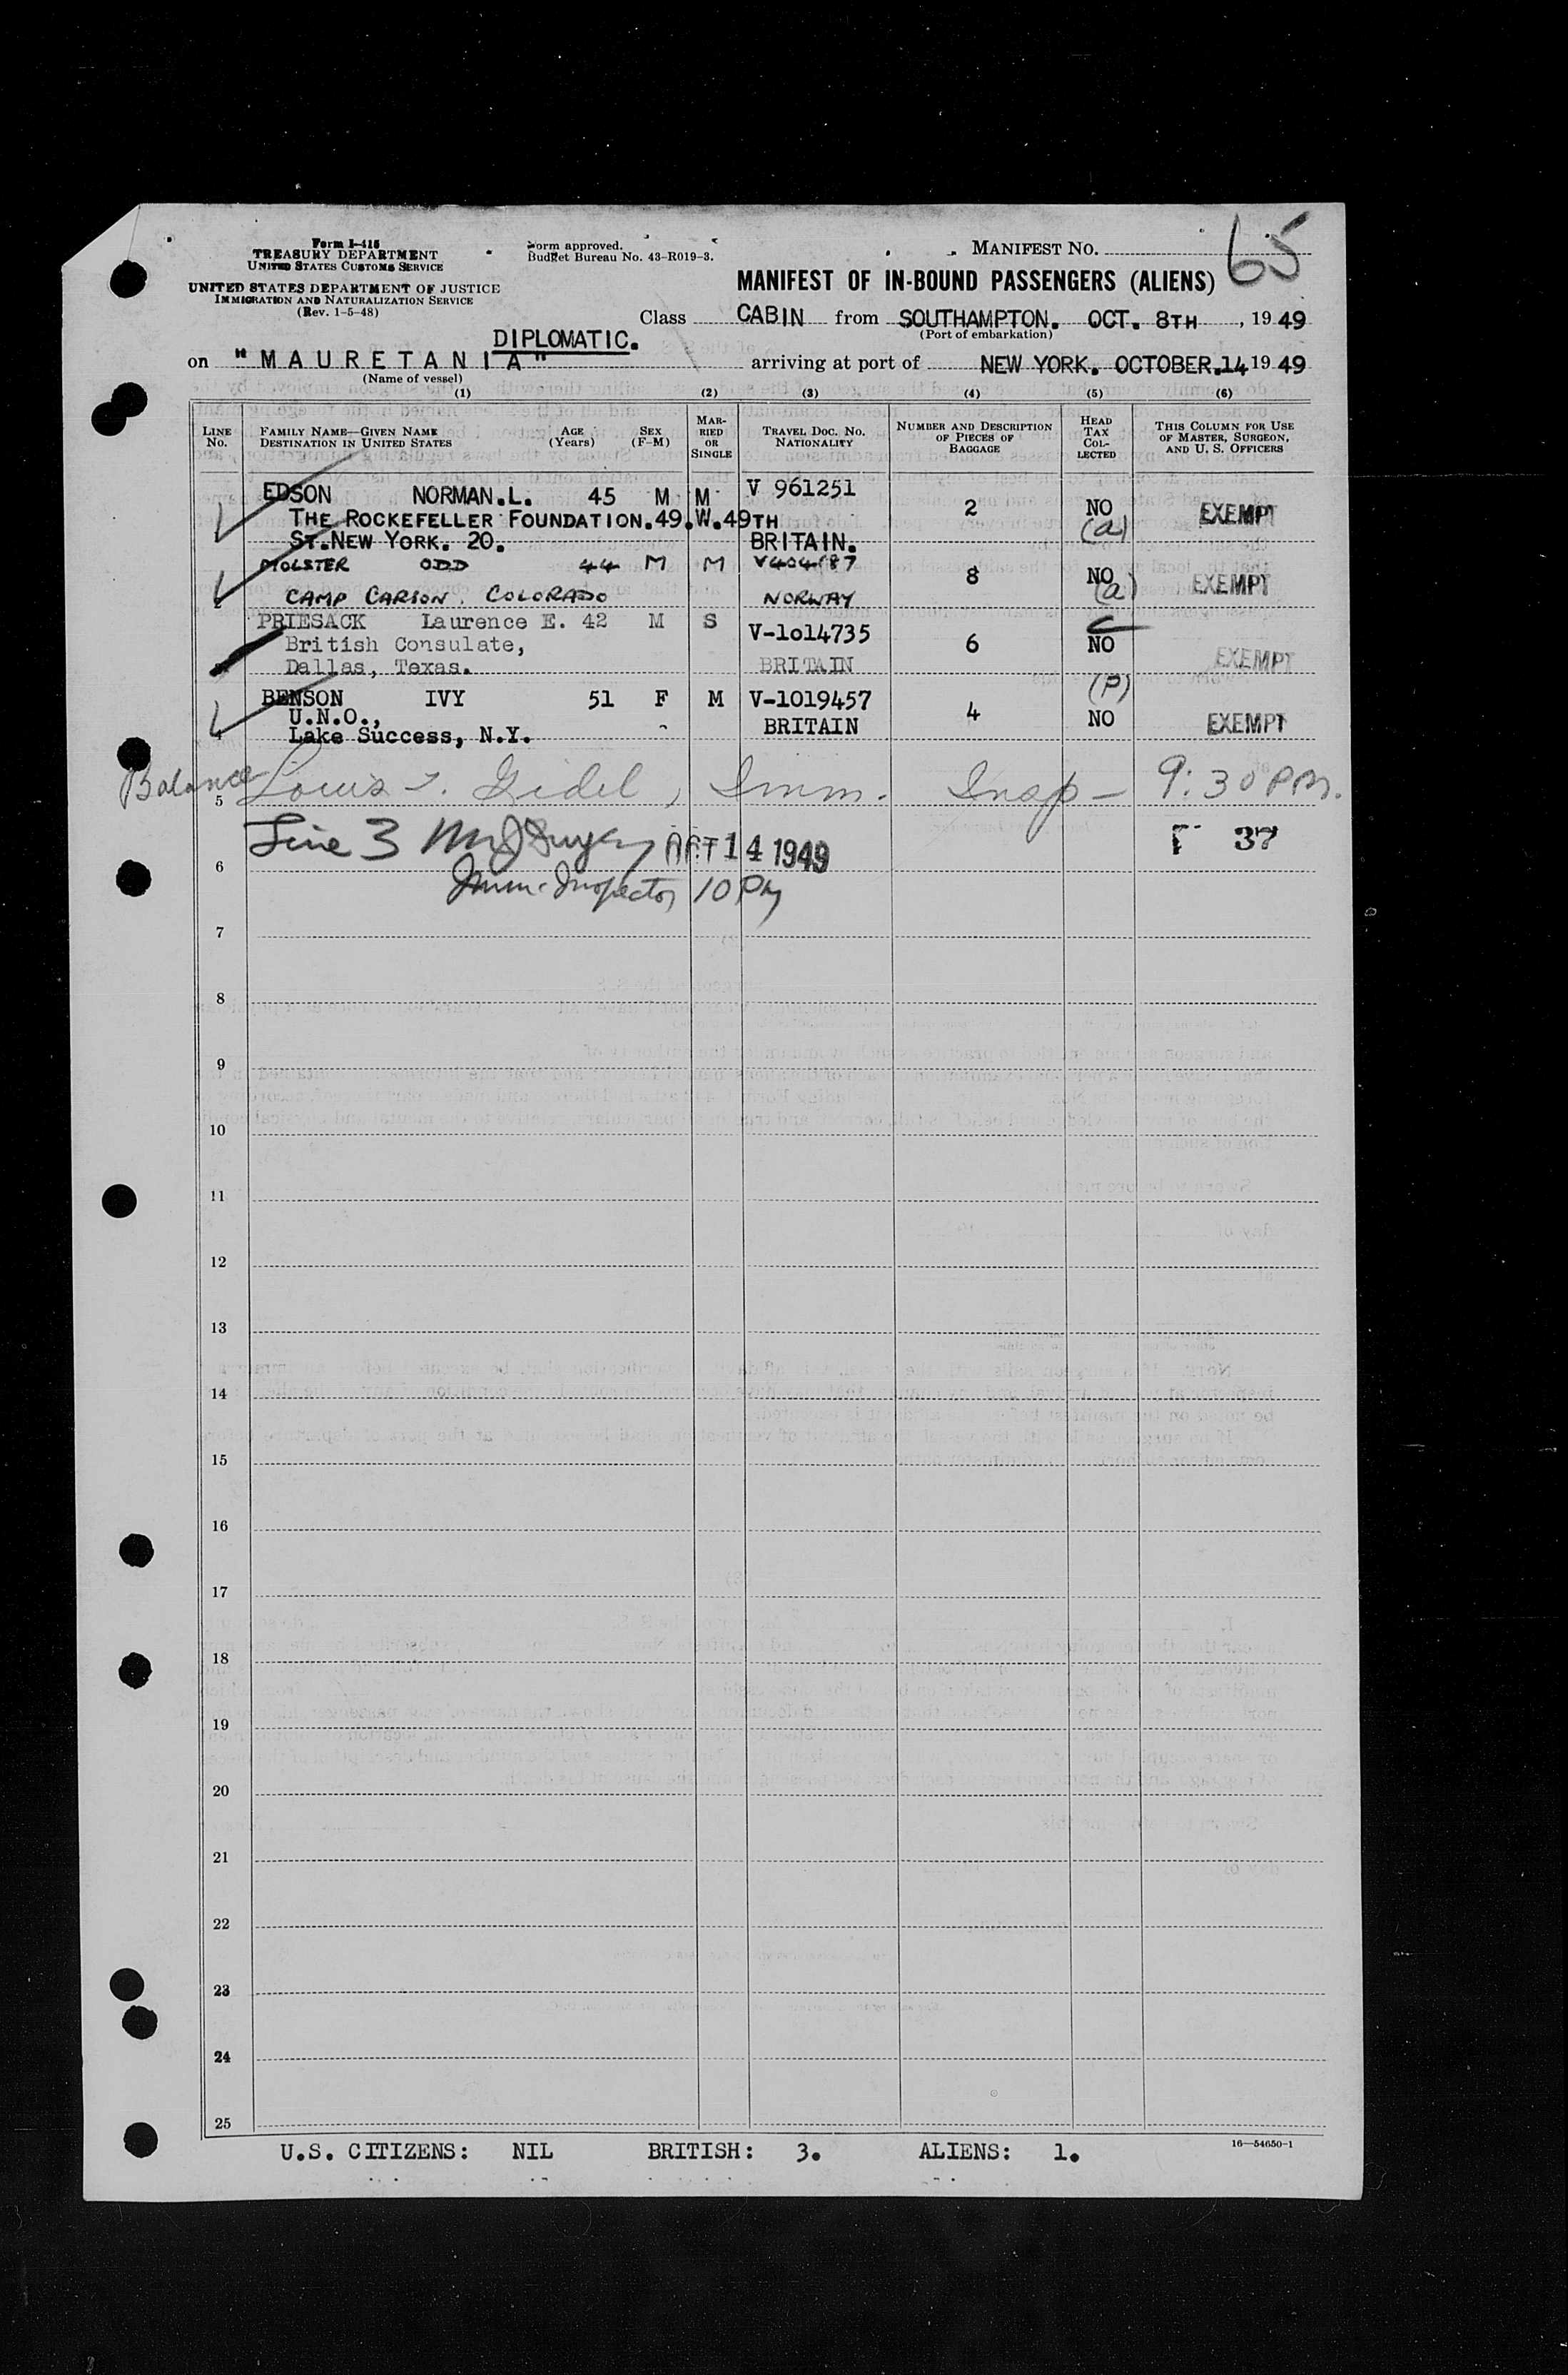 Form I-415
TREASURY DEPARTMENT
UNITED STATES CUSTOMS SERVICE
UNITED STATES DEPARTMENT OF JUSTICE
IMMIGRATION AND NATURALIZATION SERVICE
(Rev. 1-5-48)
Form approved.
Budget Bureau No. 43-R019-3.
MANIFEST NO. 65
MANIFEST OF IN-BOUND PASSENGERS (ALIENS)
Class CABIN from SOUTHAMPTON. OCT. 8TH, 1949
(Port of embarkation)
DIPLOMATIC.
on "MAURETANIA" arriving at port of NEW YORK. OCTOBER.14 1949
(Name of vessel)
(1) (2) (3) (4) (5) (6)
LINE No. FAMILY NAME—GIVEN NAME DESTINATION IN UNITED STATES AGE (Years) SEX (F-M) MARRIED OR SINGLE TRAVEL DOC. NO. NATIONALITY NUMBER AND DESCRIPTION OF PIECES OF BAGGAGE HEAD TAX COLLECTED THIS COLUMN FOR USE OF MASTER, SURGEON, AND U. S. OFFICERS
EDSON NORMAN.L. 45 M M V 961251 2 NO EXEMPT
THE ROCKEFELLER FOUNDATION.49.W.49TH (a)
ST.NEW YORK. 20. BRITAIN.
MOLSTER ODD 44 M M V404187 8 NO EXEMPT
CAMP CARSON. COLORADO NORWAY (a)
PRIESACK Laurence E. 42 M S V-1014735 6 NO EXEMPT
British Consulate,
Dallas, Texas. BRITAIN
(P)
BENSON IVY 51 F M V-1019457 4 NO EXEMPT
U.N.O., BRITAIN
4 Lake Success, N.Y.
Balance Louis Gidel, Imm. Insp— 9:30 PM.
5
Line 3 14 1949 37
6
Imm. Inspector 10 PM
7
8
9
10
11
12
13
14
15
16
17
18
19
20
21
22
23
24
25
U.S. CITIZENS: NIL BRITISH: 3. ALIENS: 1.
16—54650-1